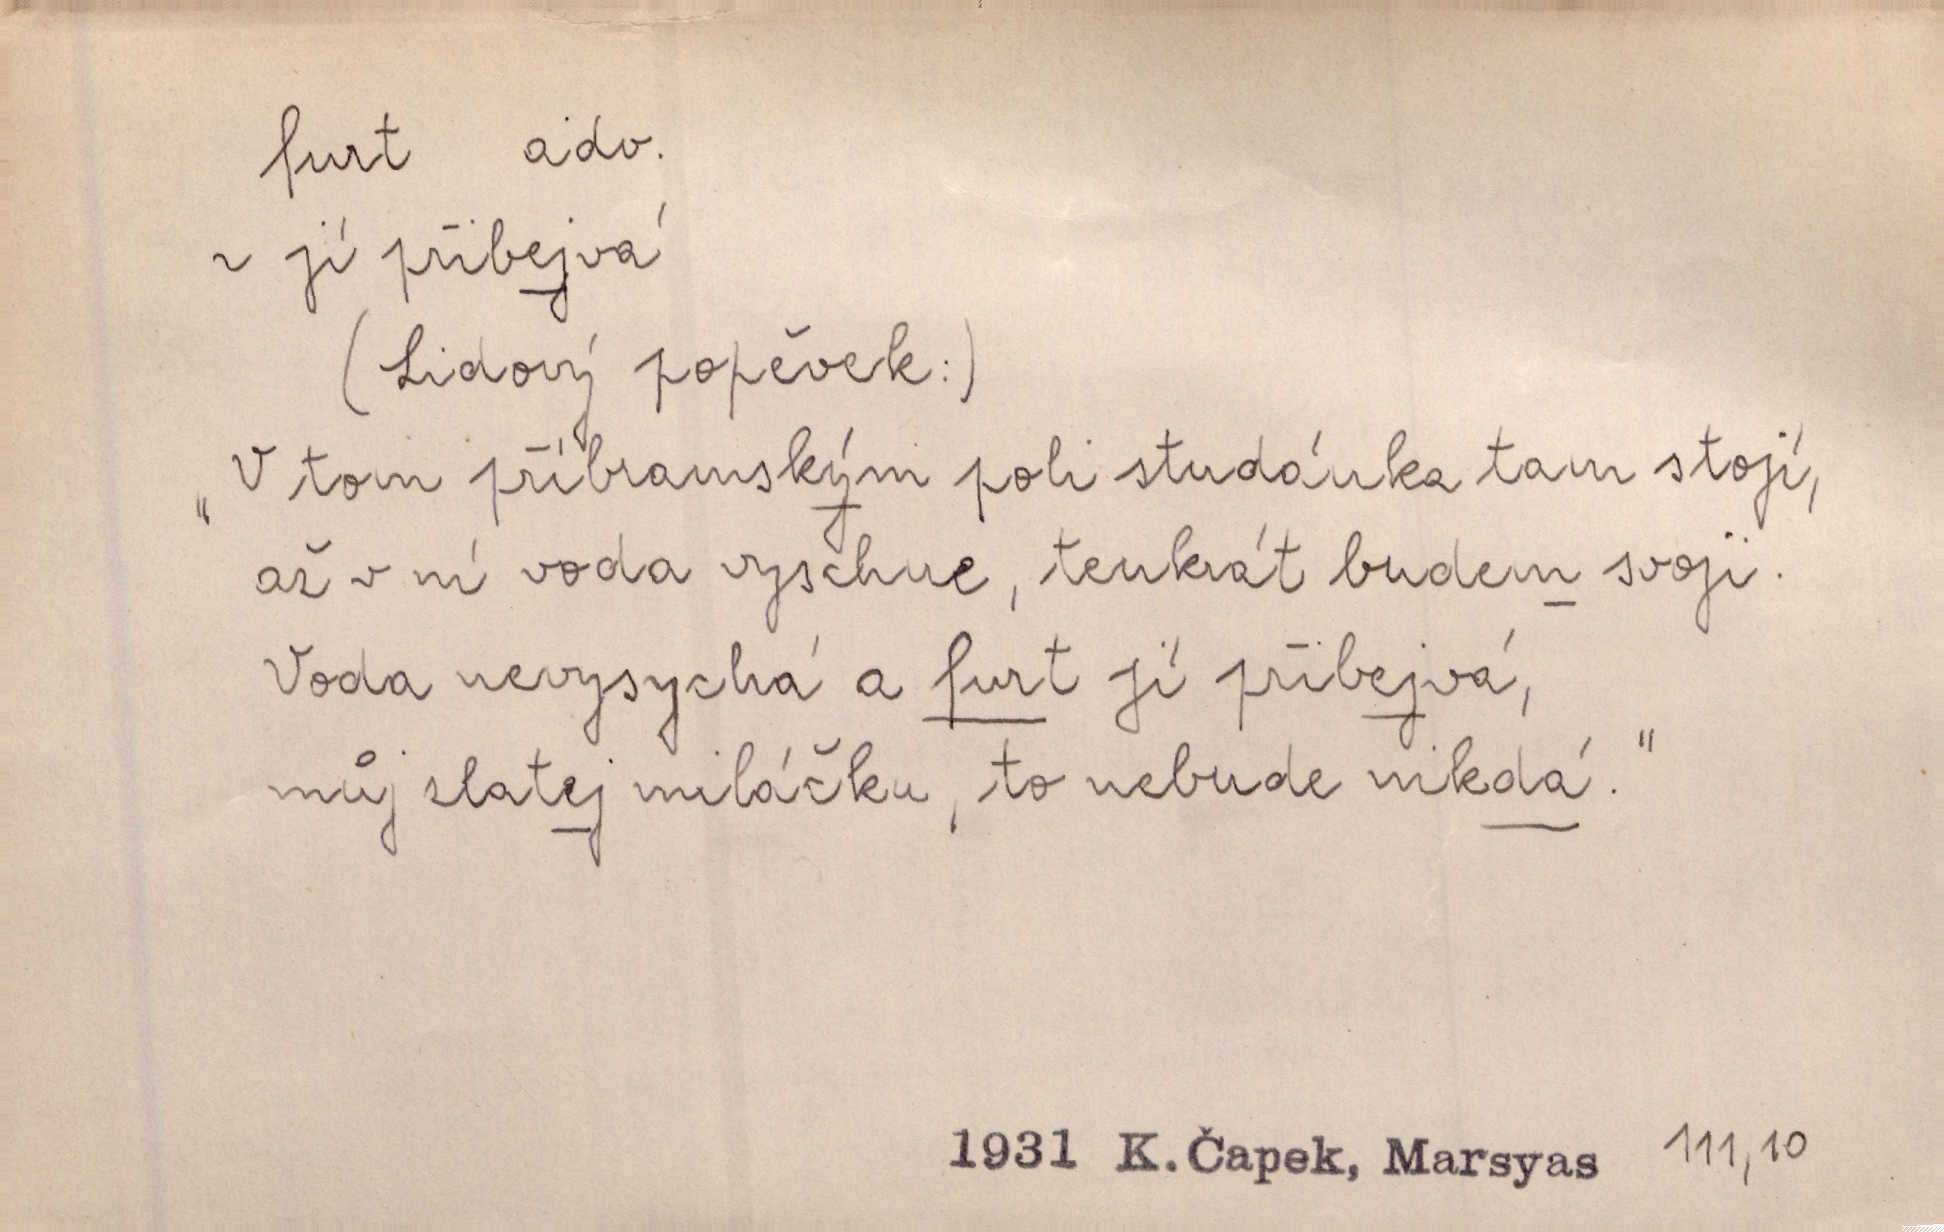 furt adv.
~ jí přibejvá
(Lidový popěvek:)
„V tom příbramským poli studánka tam stojí,
až v ní voda vyschne, tenkrát budem svoji.
Voda nevysychá a furt jí přibejvá,
můj slatej miláčku, to nebude nikdá."
1931 K. Čapek, Marsyas 111,10